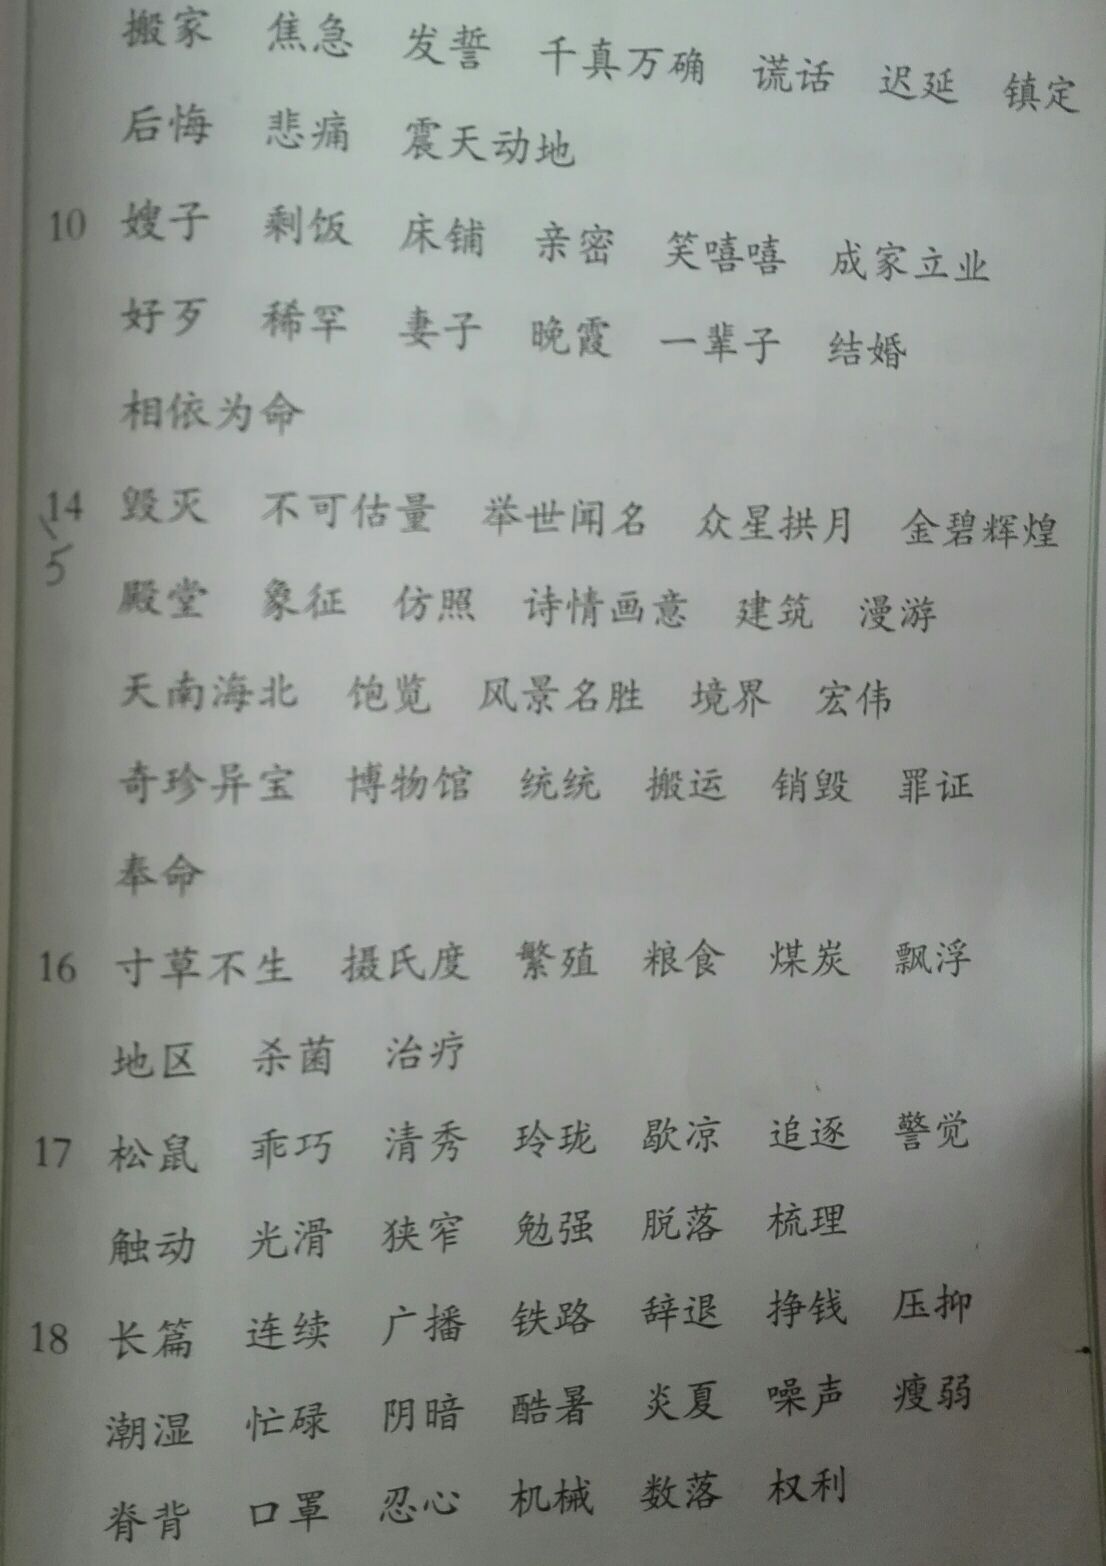 搬家 焦急 发誓 千真万确 谎话 迟延 镇定
后悔 悲痛 震天动地
10 嫂子 剩饭 床铺 亲密 笑嘻嘻 成家立业
好歹 稀罕 妻子 晚霞 一辈子 结婚
相依为命
14 毁灭 不可估量 举世闻名 众星拱月 金碧辉煌
5
殿堂 象征 仿照 诗情画意 建筑 漫游
天南海北 饱览 风景名胜 境界 宏伟
奇珍异宝 博物馆 统统 搬运 销毁 罪证
奉命
16 寸草不生 摄氏度 繁殖 粮食 煤炭 飘浮
地区 杀菌 治疗
17 松鼠 乖巧 清秀 玲珑 歇凉 追逐 警觉
触动 光滑 狭窄 勉强 脱落 梳理
18 长篇 连续 广播 铁路 辞退 挣钱 压抑
潮湿 忙碌 阴暗 酷暑 炎夏 噪声 瘦弱
脊背 口罩 忍心 机械 数落 权利